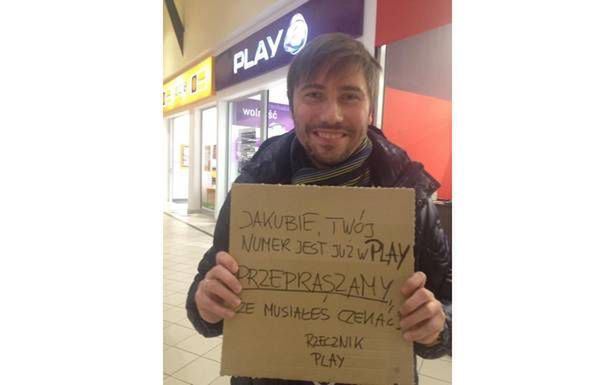 PLAY
wolność
JAKUBIE, TWÓJ
NUMER JEST JUŻ W PLAY
PRZEPRASZAMY,
ŻE MUSIAŁEŚ CZEKAĆ.
RZECZNIK
PLAY